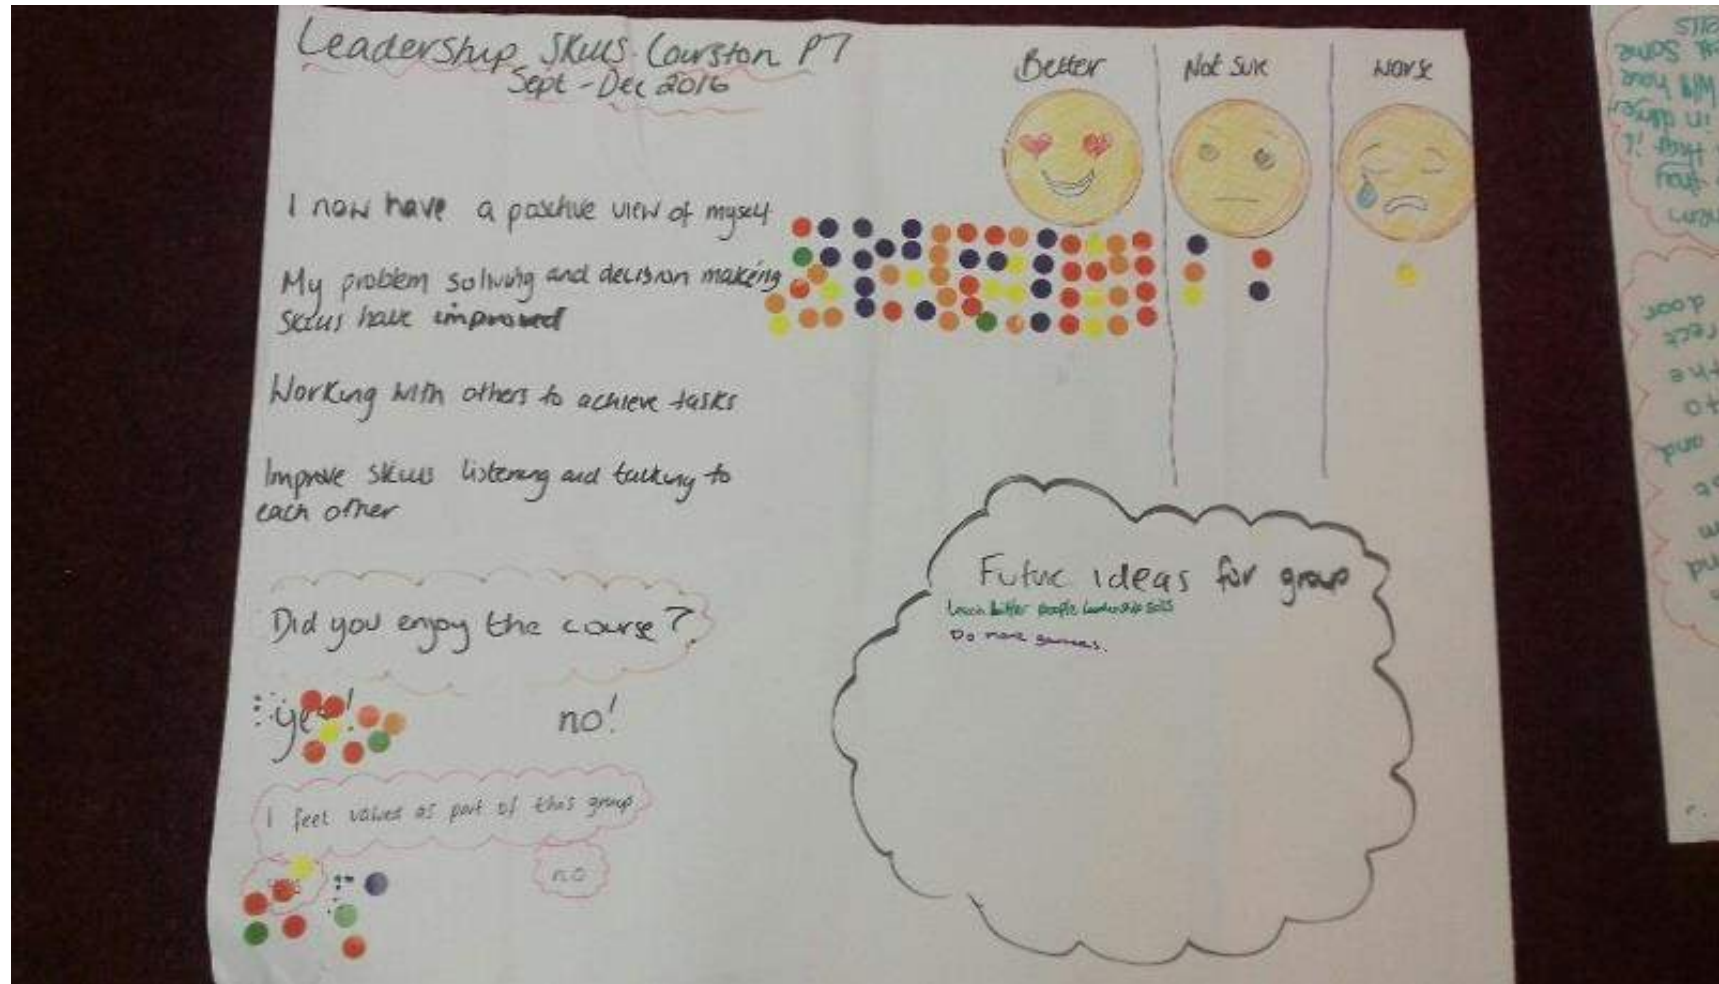 Leadership Skills Courston P7
Sept - Dec 2016
Better
Not sure
worse
I now have a positive view of myself
My problem solving and decision making
skills have improved
Working with others to achieve tasks
Improve skills listening and talking to
each other
Did you enjoy the course?
yes!
no!
I feel values as part of this group
yes
no
Future ideas for group
people leadership
Do more games.